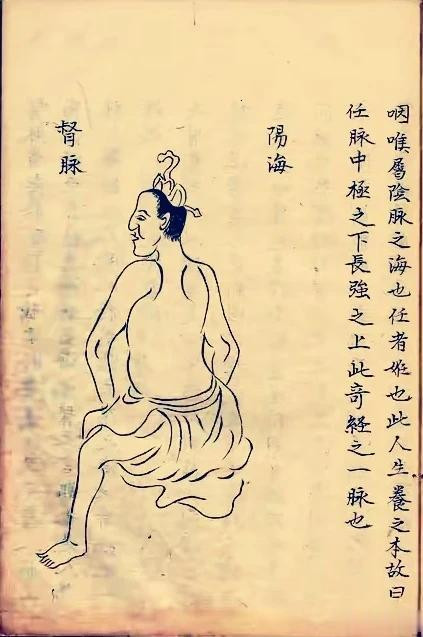 咽喉屬陰脈之海也任者姙也此人生養之本故曰
任脈中極之下長強之上此奇經之一脈也
陽海
督脈